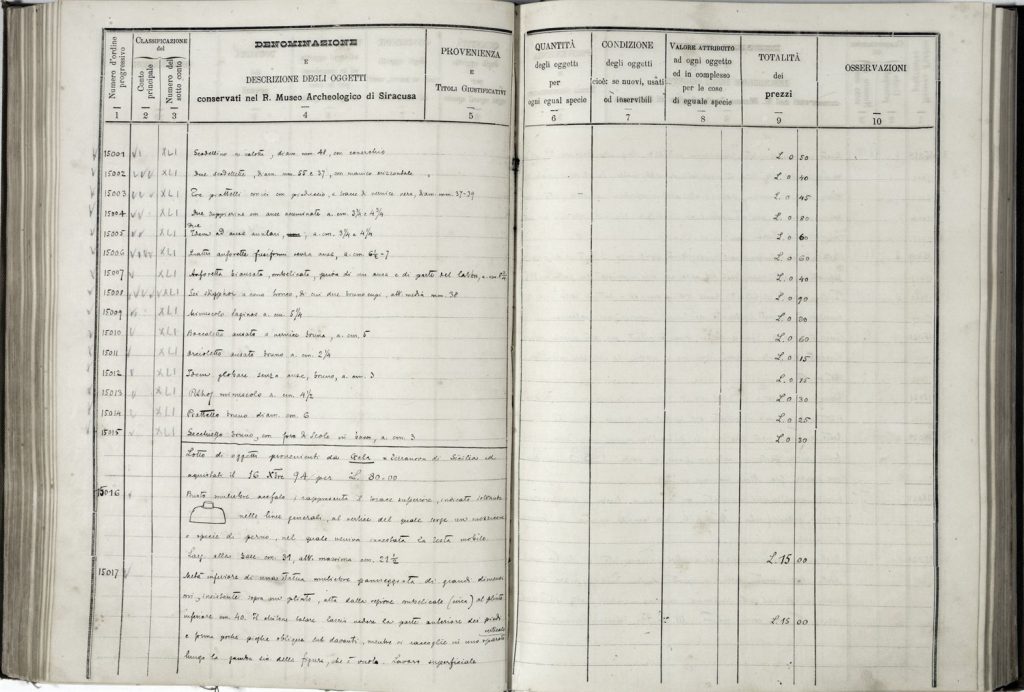 Numero d'ordine progressivo
CLASSIFICAZIONE
del
Conto principale
Numero del sotto conto
DENOMINAZIONE
E
DESCRIZIONE DEGLI OGGETTI
conservati nel R. Museo Archeologico di Siracusa
PROVENIENZA
E
TITOLI GIUSTIFICATIVI
QUANTITÀ
degli oggetti
per
ogni egual specie
CONDIZIONE
degli oggetti
cioè: se nuovi, usati
od inservibili
VALORE ATTRIBUITO
ad ogni oggetto
od in complesso
per le cose
di eguale specie
TOTALITÀ
dei
prezzi
OSSERVAZIONI
1 2 3 4 5 6 7 8 9 10
15001 VI XLI Scodellino a calotta, diam. mm. 48, con coperchio L. 0 50
15002 XLI Due scodellette, diam. mm. 55 e 37, con manico orizzontale L. 0 40
15003 XLI Tre piattelli con vernice nera, diam. mm. 37-39 L. 0 45
15004 XLI Due con anse a cm. 3¾ e 4¾ L. 0 80
15005 XLI Due Idem ad anse anulari, a. cm. 3¾ e 4¼ L. 0 60
15006 XLI Quattro anforette fusiformi senza anse, a. cm 6½-7 L. 0 60
15007 XLI Anforetta biansata, priva di un ansa e di parte del labbro, a. cm. L. 0 40
15008 XLI Sei skyphoi a cono tronco, di cui due alt. media mm. 38 L. 0 90
15009 XLI Minuscolo laginos a. cm. 5¼ L. 0 80
15010 XLI Boccaletto ansato a vernice bruna, a. cm. 5 L. 0 60
15011 XLI Orcioletto ansato bruno a. cm. 2¼ L. 0 15
15012 XLI Idem globare senza anse, bruno, a. cm. 3 L. 0 15
15013 XLI Pithos minuscolo a. cm. 4½ L. 0 30
15014 XLI Piattello bruno diam. cm. 6 L. 0 25
15015 XLI bruno, con foro di scolo in basso, a. cm. 3 L. 0 30
Lotto di oggetti provenienti da Gela = Terranova di Sicilia ed
acquistati il 16 Xbre 94 per L. 30.00
15016 Busto muliebre acefalo; rappresenta il torace superiore, indicato soltanto
nelle linee generali, al vertice del quale sorge un
o specie di perno, nel quale veniva la testa mobile.
Larg. alla base cm. 31, alt. massima cm. 21½ L. 15 00
15017 Metà inferiore di una statua muliebre panneggiata di grandi dimensi
oni, insistente sopra un plinto, alta dalla regione ombelicale (circa) al plinto
inferiore cm. 40. Il chitone talare lascia vedere la parte anteriore dei piedi L. 15 00
e forma poche pieghe oblique sul davanti, mentre si raccoglie in uno verticale
lungo la gamba sin. della figura, che è vuota. Lavoro superficiale